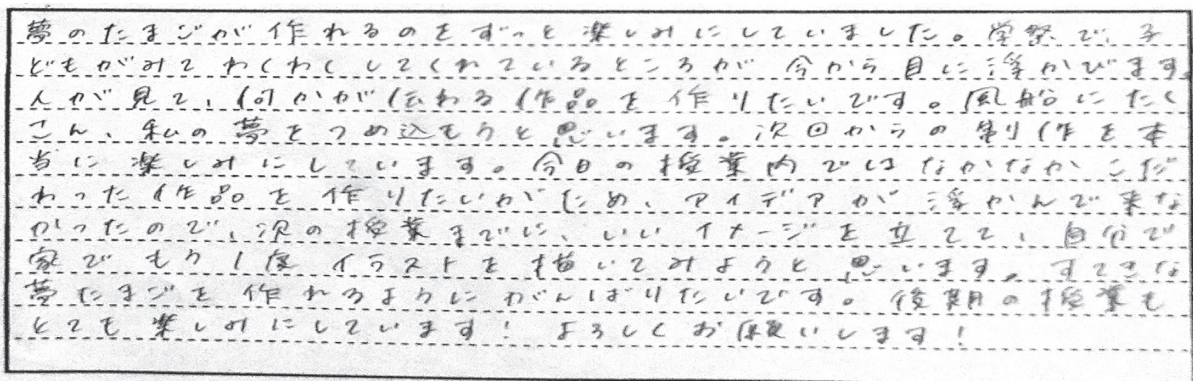 夢のたまごが作れるのをずっと楽しみにしていました。学祭で、子
どもがみてわくわくしてくれているところが今から目に浮かびます。
人が見て、何かが伝わる作品を作りたいです。風船にたく
さん、私の夢をつめ込もうと思います。次回からの制作を本
当に楽しみにしています。今日の授業内ではなかなかこだ
わった作品を作りたいがため、アイデアが浮かんで来な
かったので、次の授業までに、いいイメージを立てて、自分で
家でもう1度イラストを描いてみようと思います。すてきな
夢たまごを作れるようにがんばりたいです。後期の授業も
とても楽しみにしています！よろしくお願いします！